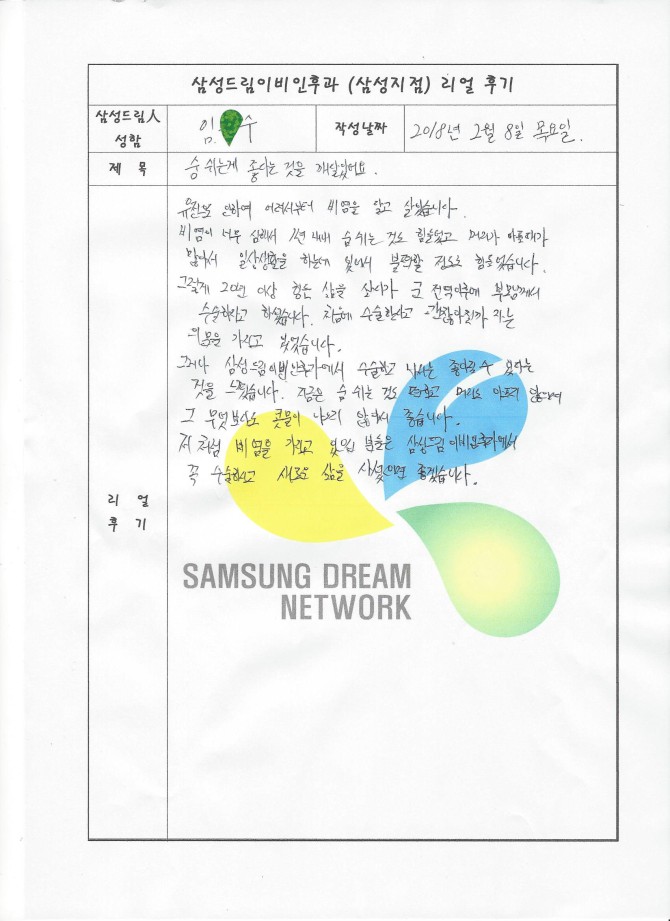 삼성드림이비인후과 (삼성지점) 리얼 후기
삼성드림人 성함
임 수
작성날짜
2018년 2월 8일 목요일.
제 목
숨 쉬는게 좋다는 것을 깨달았어요.
리 얼
후 기
유전으로 인하여 어려서부터 비염을 앓고 살았습니다.
비염이 너무 심해서 1년 내내 숨 쉬는 것도 힘들었고 머리가 아플때가
많아서 일상생활을 하는데 있어서 불편할 정도로 힘들었습니다.
그렇게 20년 이상 힘든 삶을 살다가 군 전역이후에 부모님께서
수술하라고 하셨습니다. 처음에 수술한다고 괜찮아질까 라는
의문을 가지고 있었습니다.
그러나 삼성드림이비인후과에서 수술하고 나서는 좋아질 수 있다는
것을 느꼈습니다. 지금은 숨 쉬는 것도 편하고 머리도 아프지 않으며
그 무엇보다도 콧물이 나오지 않아서 좋습니다.
저처럼 비염을 가지고 있는 분들은 삼성드림이비인후과에서
꼭 수술하시고 새로운 삶을 사셨으면 좋겠습니다.
SAMSUNG DREAM
NETWORK